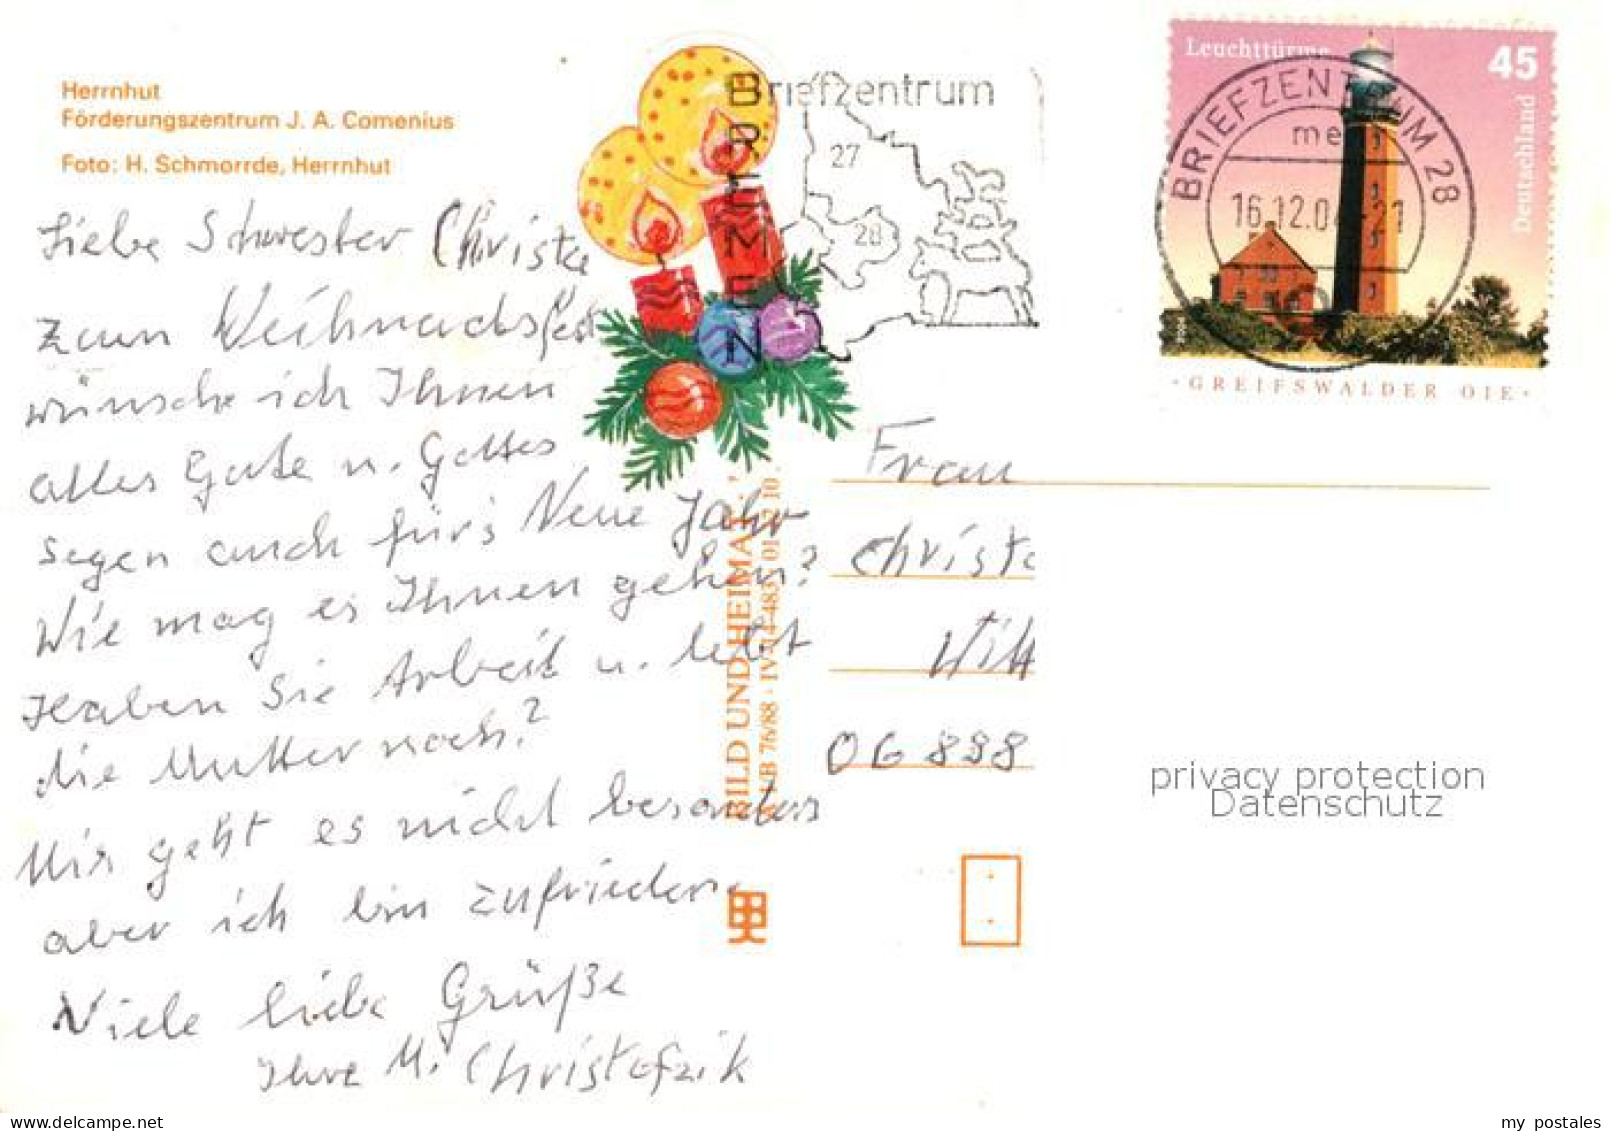 Herrnhut
Förderungszentrum J. A. Comenius
Foto: H. Schmorrde, Herrnhut
Liebe Schwester Christe
zum Weihnachtsfest
wünsche ich Ihnen
alles Gute u. Gottes
Segen auch für's Neue Jahr
Wie mag es Ihnen gehen?
Haben Sie Arbeit u. lebt
die Mutter noch?
Mir geht es nicht besonders
aber ich bin zufrieden.
Viele liebe Grüße
Ihre M. Christofzik
Briefzentrum
BREMEN
27
28
BILD UND HEIMAT
76/88
Leuchttürme
45
Deutschland
BRIEFZENTRUM 28
16.12.04-21
GREIFSWALDER OIE
Frau
Christe
Witt
06888
privacy protection
Datenschutz
www.delcampe.net
my_postales